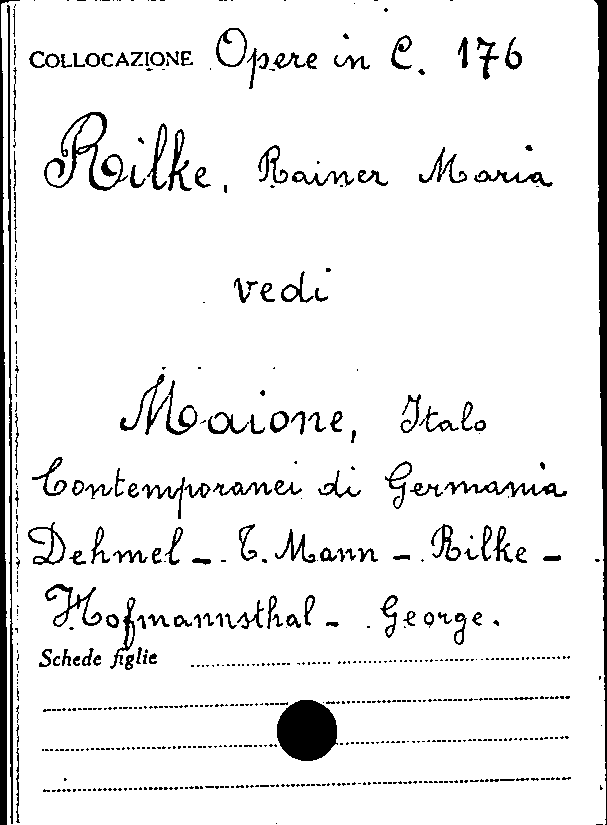 COLLOCAZIONE Opere in C. 176
Rilke, Rainer Maria
vedi
Maione, Italo
Contemporanei di Germania
Dehmel - T. Mann - Rilke -
Hofmannsthal - George.
Schede figlie